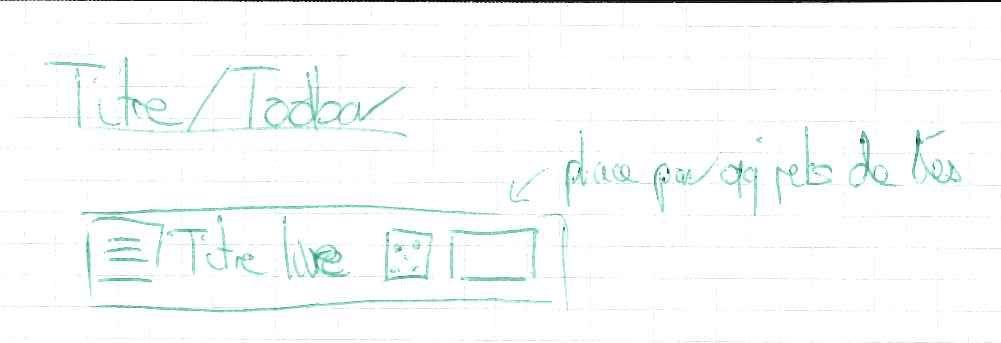 Titre/Toolbar
place pour objets de dés
Titre livre